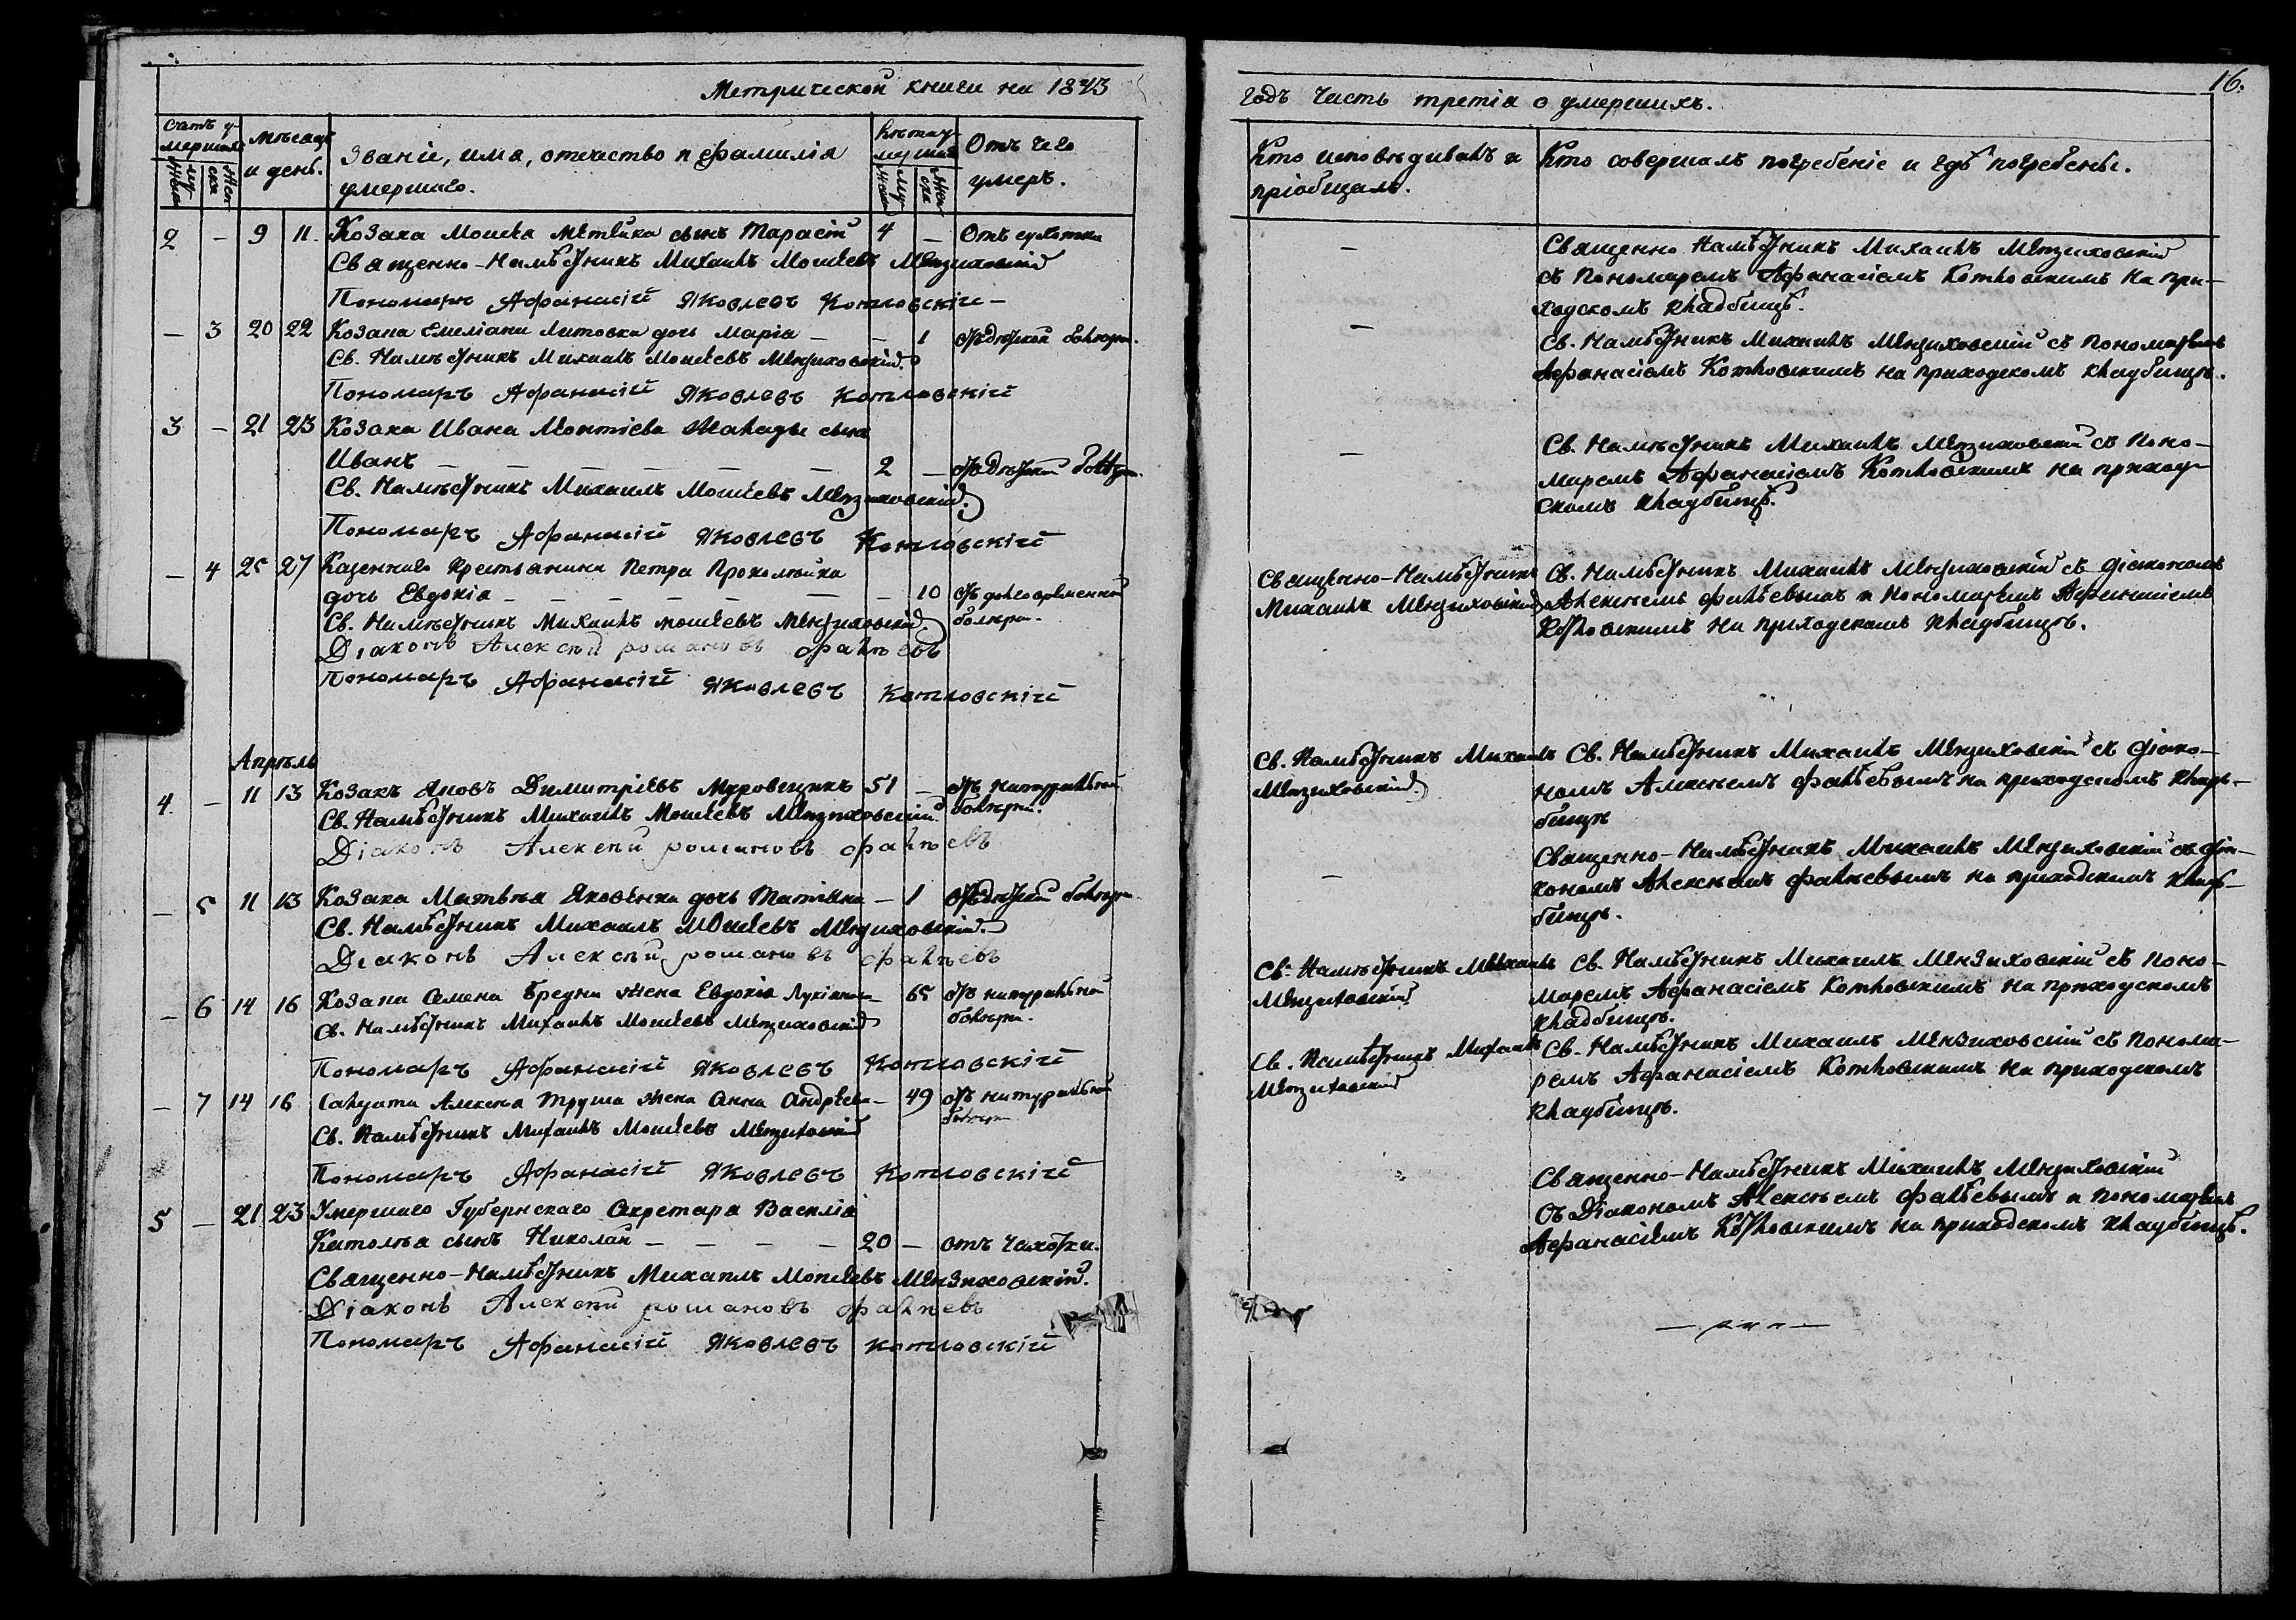 Метрической книги на 1843
Счетъ умершихъ
Мѣсяцъ и день.
Званіе, имя, отечество и фамилія
умершаго.
Отъ чего
умеръ.
2 – 9 11. Козака Моисея сынъ Тарасій 4 – Отъ сухотки
Священно-Намѣстникъ Михаилъ Моисеевъ Мензиховскій
Пономарь Афанасій Яковлевъ Котловскій –
– 3 20 22 Козака Емеліана Литовка дочь Марія – – 1 отъ дѣтской болѣзни.
Св. Намѣстникъ Михаилъ Моисеевъ Мензиховскій.
Пономарь Афанасій Яковлевъ Котловскій
3 – 21 23 Козака Ивана Леонтіева сынъ
Иванъ – – – – – – 2 – отъ дѣтской болѣзни.
Св. Намѣстникъ Михаилъ Моисеевъ Мензиховскій.
Пономарь Афанасій Яковлевъ Котловскій
– 4 25 27 Казеннаго Крестьянина Петра Прокопѣйка
дочь Евдокія – – – – – – – 10 отъ долговременной
Св. Намѣстникъ Михаилъ Моисеевъ Мензиховскій. болѣзни.
Діаконъ Алексѣй Романовъ Фалѣевъ
Пономарь Афанасій Яковлевъ Котловскій
Апрѣль
4. – 11 13 Козакъ Яковъ Димитріевъ 51 – отъ натуральной
Св. Намѣстникъ Михаилъ Моисеевъ Мензиховскій. болѣзни.
Діаконъ Алексѣй Романовъ Фалѣевъ
– 5 11 13 Козака Матвѣя Яковенка дочь Татіана – 1 отъ дѣтской болѣзни
Св. Намѣстникъ Михаилъ Моисеевъ Мензиховскій.
Діаконъ Алексѣй Романовъ Фалѣевъ
– 6 14 16 Козака Семена Бредни жена Евдокія Лукіанова – 65 отъ натуральной
Св. Намѣстникъ Михаилъ Моисеевъ Мензиховскій болѣзни.
Пономарь Афанасій Яковлевъ Котловскій
– 7 14 16 Солдата Алексѣя Труша жена Анна Андреева – 49 отъ натуральной
Св. Намѣстникъ Михаилъ Моисеевъ Мензиховскій болѣзни
Пономарь Афанасій Яковлевъ Котловскій
5 – 21 23 Умершаго Губернскаго Секретаря Василія
сынъ Николай – – – – 20 – отъ чахотки.
Священно-Намѣстникъ Михаилъ Моисеевъ Мензиховскій.
Діаконъ Алексѣй Романовъ Фалѣевъ
Пономарь Афанасій Яковлевъ Котловскій
16.
годъ Часть третія о умершихъ.
Кто исповѣдывалъ и
пріобщалъ.
Кто совершалъ погребеніе и гдѣ погребены.
– Священно Намѣстникъ Михаилъ Мензиховскій
съ Пономаремъ Афанасіемъ Котловскимъ на при-
ходскомъ кладбищѣ.
– Св. Намѣстникъ Михаилъ Мензиховскій съ Пономаремъ
Афанасіемъ Котловскимъ на приходскомъ кладбищѣ.
– Св. Намѣстникъ Михаилъ Мензиховскій съ Поно-
маремъ Афанасіемъ Котловскимъ на приход-
скомъ кладбищѣ.
Священно-Намѣстникъ Св. Намѣстникъ Михаилъ Мензиховскій съ Діакономъ
Михаилъ Мензиховскій Алексѣемъ Фалѣевымъ и Пономаремъ Афанасіемъ
Котловскимъ на приходскомъ кладбищѣ.
Св. Намѣстникъ Михаилъ Св. Намѣстникъ Михаилъ Мензиховскій съ Діако-
Мензиховскій номъ Алексѣемъ Фалѣевымъ на приходскомъ клад-
бищѣ
– Священно-Намѣстникъ Михаилъ Мензиховскій съ Діа-
кономъ Алексѣемъ Фалѣевымъ на приходскомъ клад-
бищѣ.
Св. Намѣстникъ Михаилъ Св. Намѣстникъ Михаилъ Мензиховскій съ Поно-
Мензиховскій. маремъ Афанасіемъ Котловскимъ на приходскомъ
кладбищѣ.
Св. Намѣстникъ Михаилъ Св. Намѣстникъ Михаилъ Мензиховскій съ Понома-
Мензиховскій ремъ Афанасіемъ Котловскимъ на приходскомъ
кладбищѣ.
Священно-Намѣстникъ Михаилъ Мензиховскій
съ Діакономъ Алексѣемъ Фалѣевымъ и Пономаремъ
Афанасіемъ Котловскимъ на приходскомъ кладбищѣ.